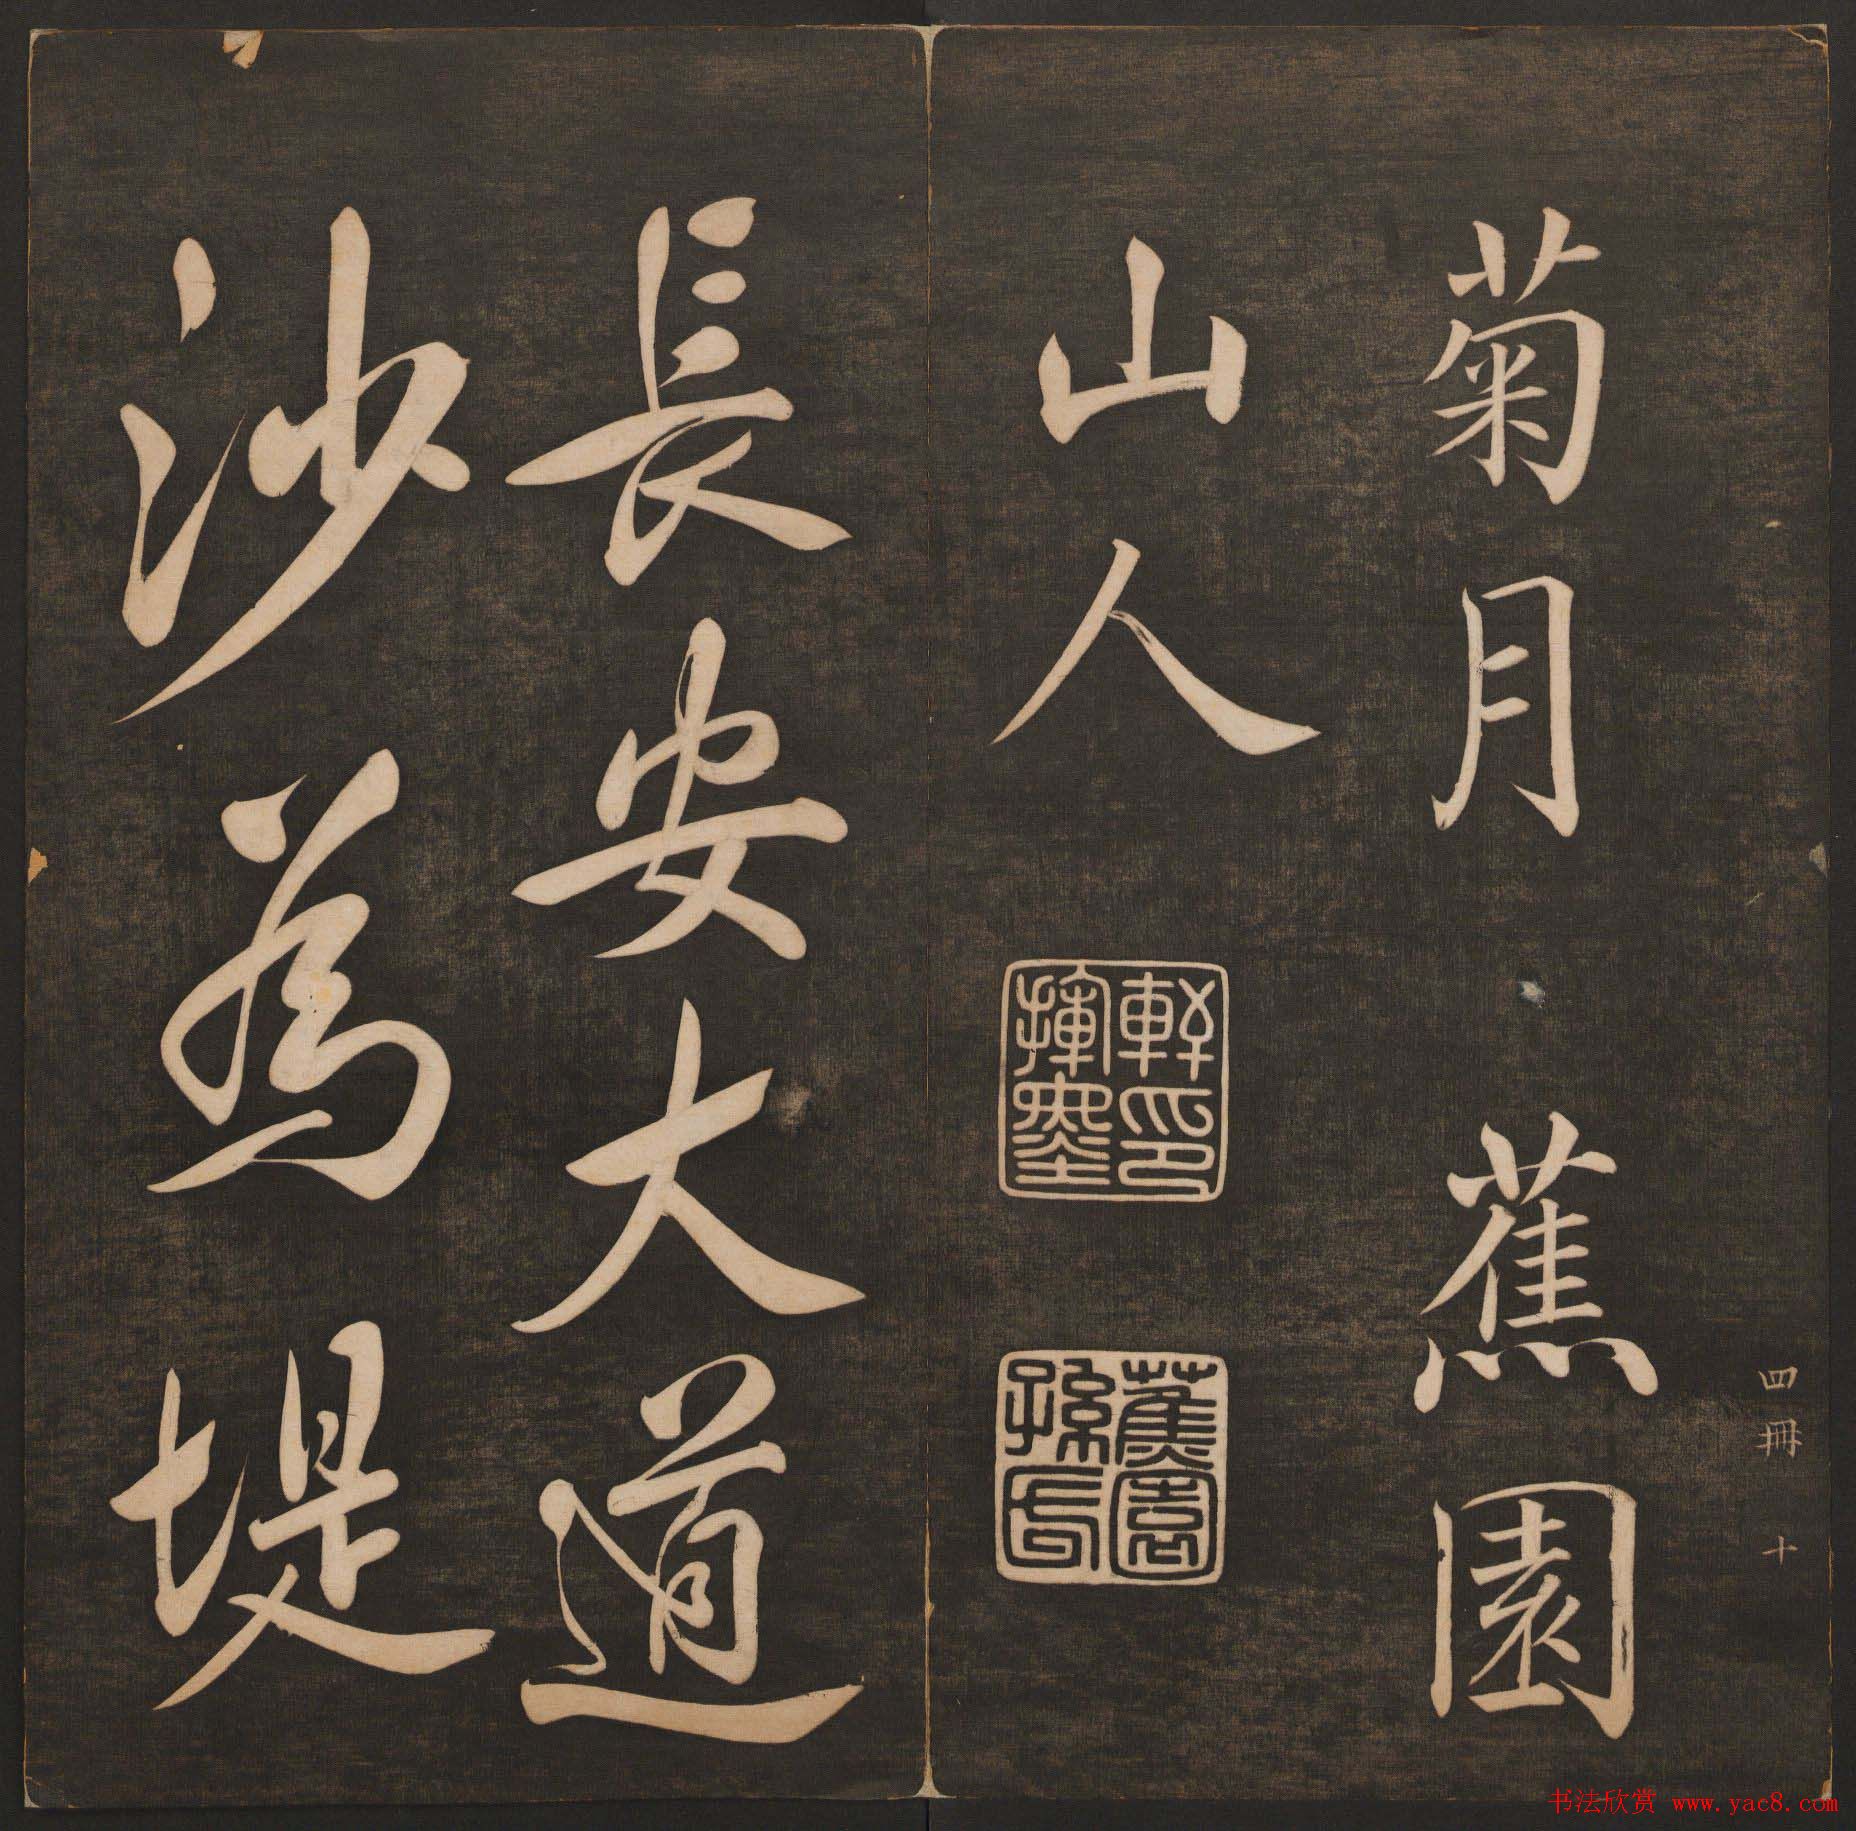 四冊 十
菊月 蕉園
山人
蕉園
長安大道
沙為堤
书法欣赏 www.yac8.com